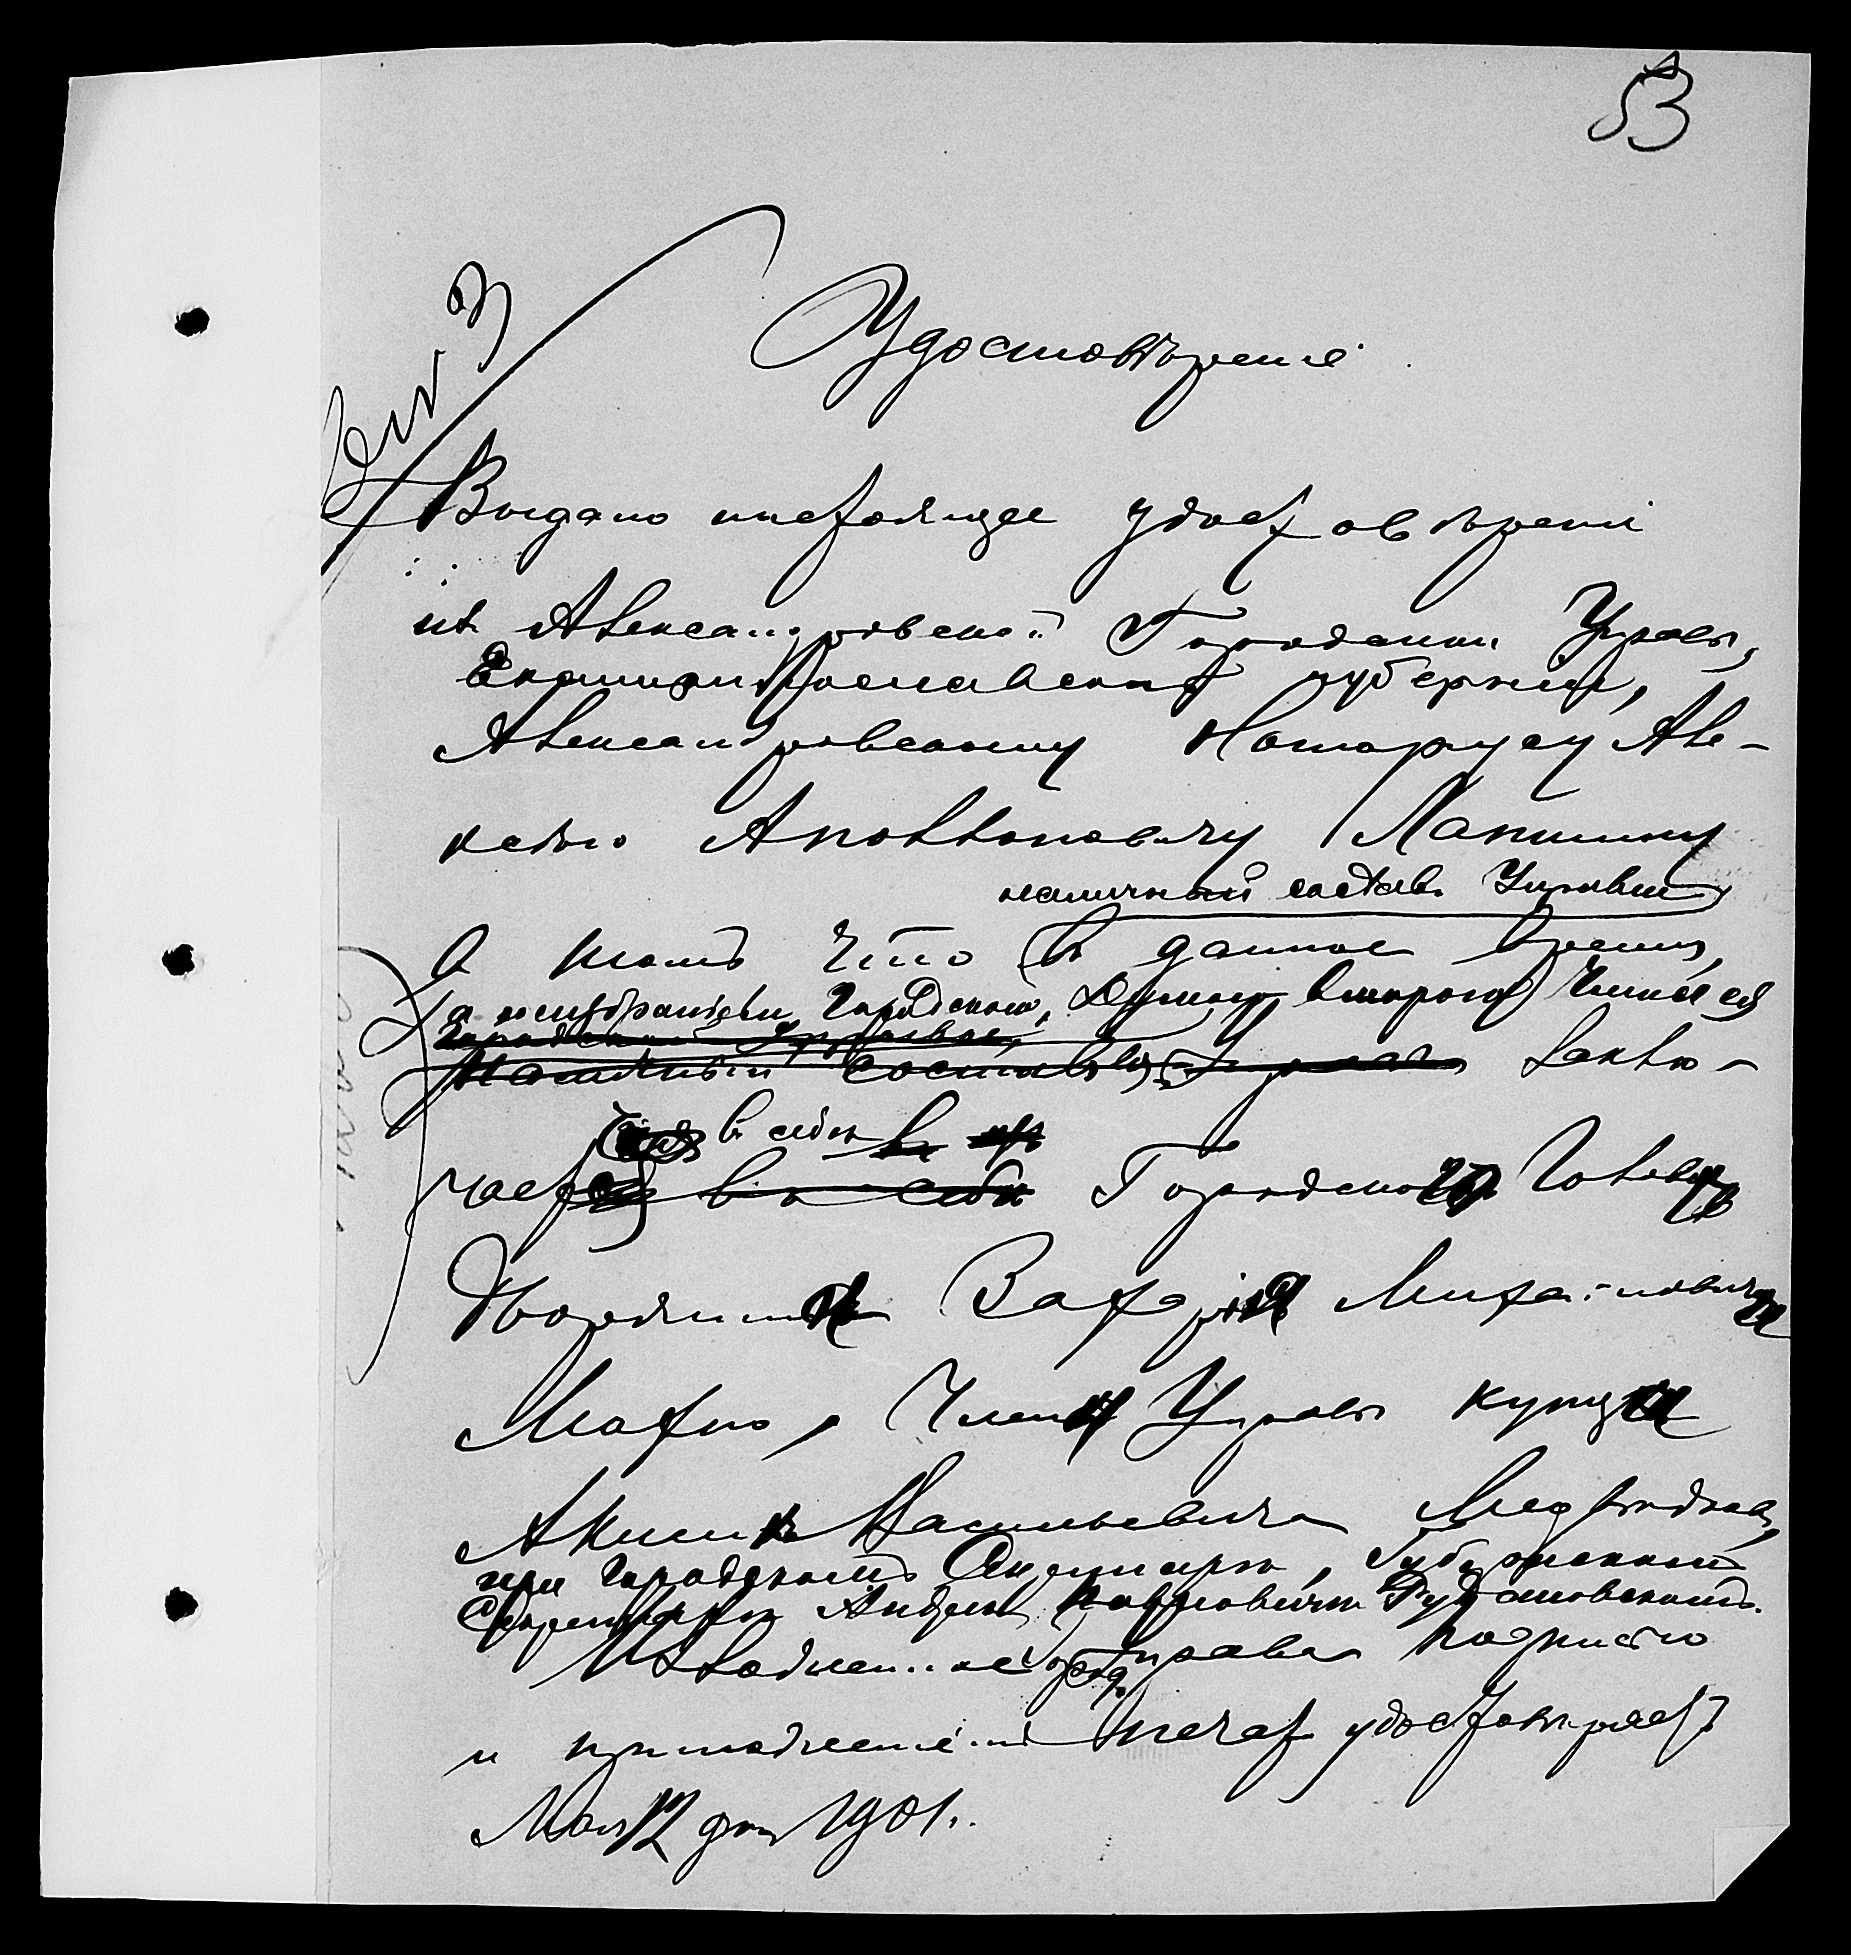 53
Удостовѣреніе.
Выдано настоящее удостовѣреніе
изъ Александровской Городской Управы,
Екатеринославской губерніи,
Александровскому Нотаріусу Але-
ксѣю Аполлоновичу Лапшину
наличный составъ Управы
о томъ что въ данное время,
за неизбраніемъ Городскою Думою второго Члена ея
Наличный составъ Управы заклю-
чает въ себѣ
въ себѣ Городского Голову
Дворянина Захарія Михайловича
Махно, Члена Управы купца
Акима Васильевича Медвѣдева,
при Городскомъ Секретарѣ, Губернскомъ
Секретарѣ Андреѣ Павловичѣ
Изложенное Город. Управа подписью
и приложеніемъ печат удостовѣряетъ
Мая 12 дня 1901.